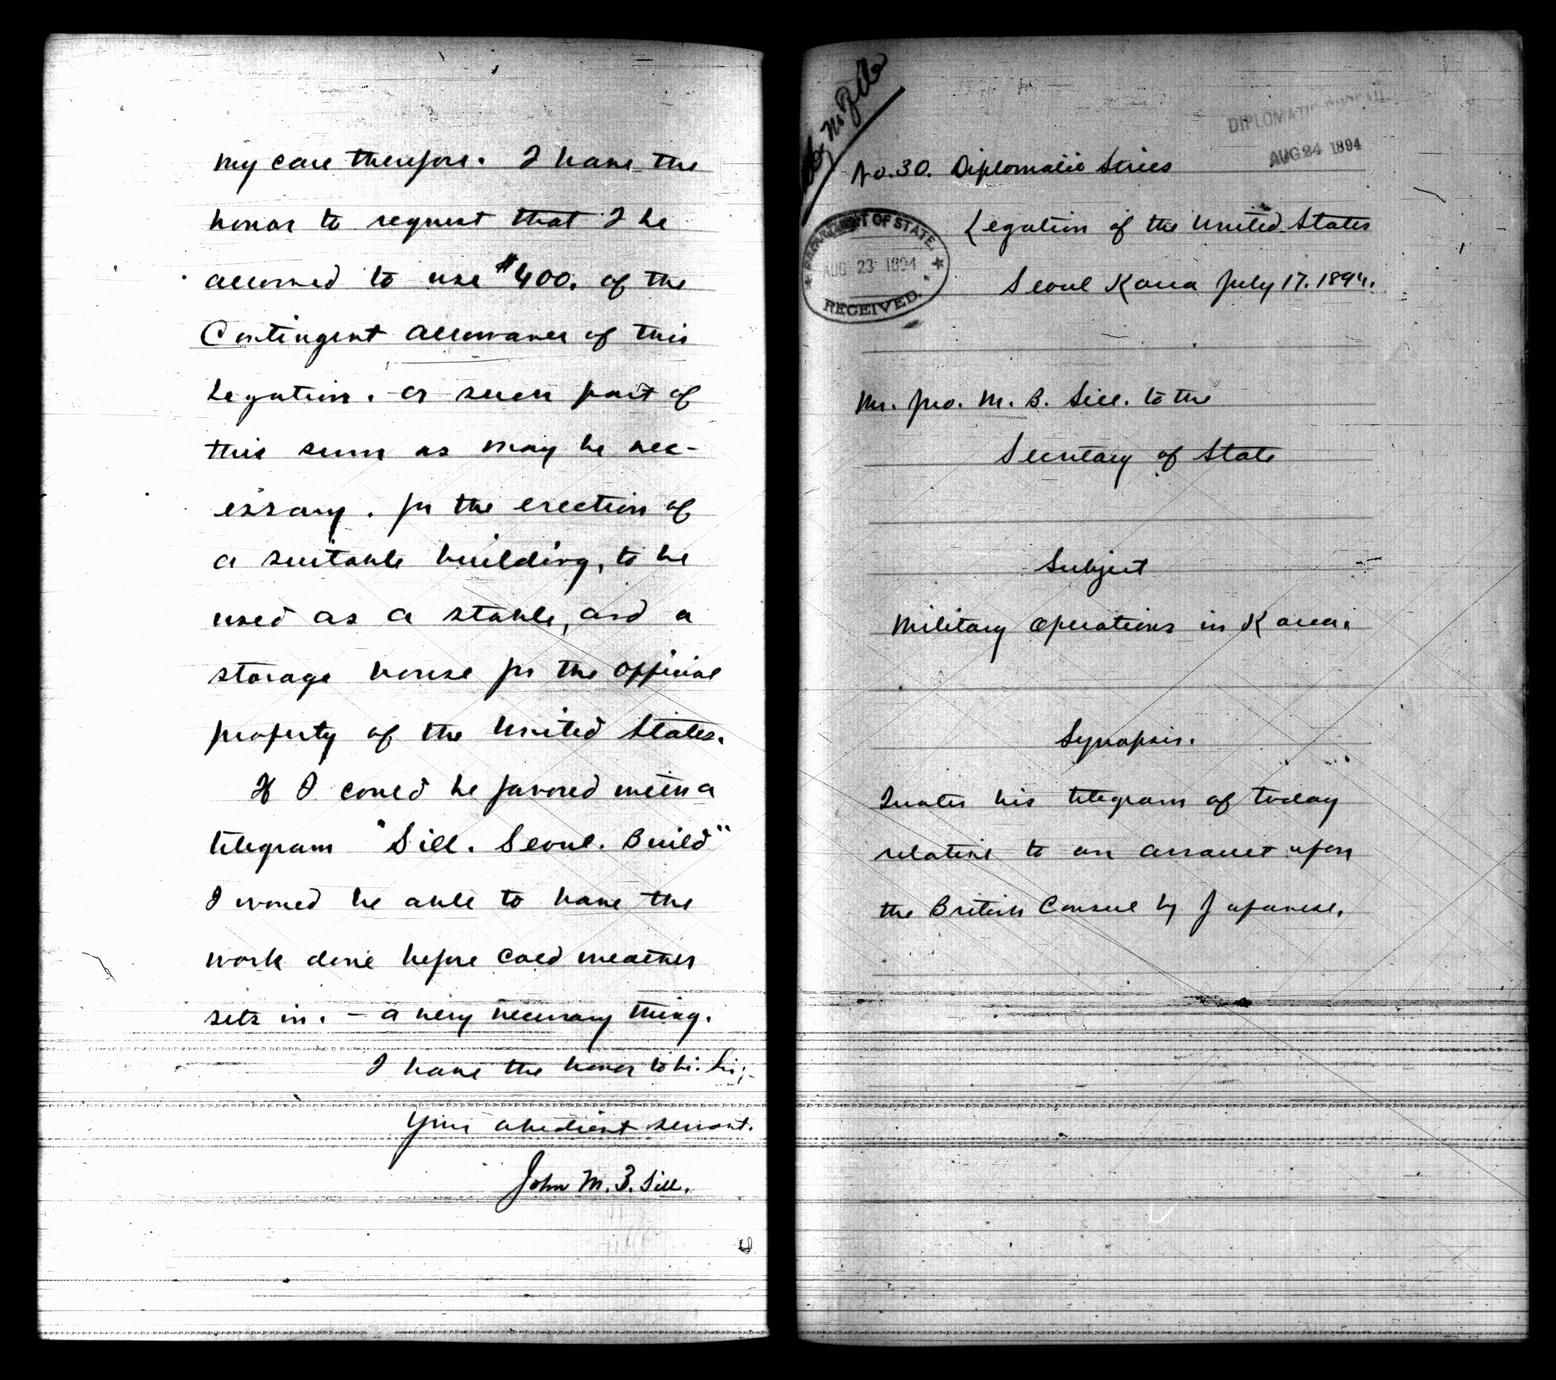 my care therefore. I have the
honor to request that I be
allowed to use $400. of the
Contingent allowance of this
Legation. or such part of
this sum as may be nec-
essary. for the erection of
a suitable building, to be
used as a stable, and a
storage house for the official
property of the United States.
If I could be favored with a
telegram "Sill. Seoul. Build"
I would be able to have the
work done before cold weather
sets in. - a very necessary thing.
I have the honor to be. Sir;
Your obedient servant.
John M. B. Sill.
No. 30. Diplomatic Series
DIPLOMATIC BUREAU
AUG 24 1894
DEPARTMENT OF STATE.
AUG 23 1894
RECEIVED.
Legation of the United States
Seoul Korea July 17. 1894.
Mr. Jno. M. B. Sill. to the
Secretary of State
Subject
Military Operations in Korea.
Synopsis.
Quotes his telegram of today
relative to an assault upon
the British Consul by Japanese.